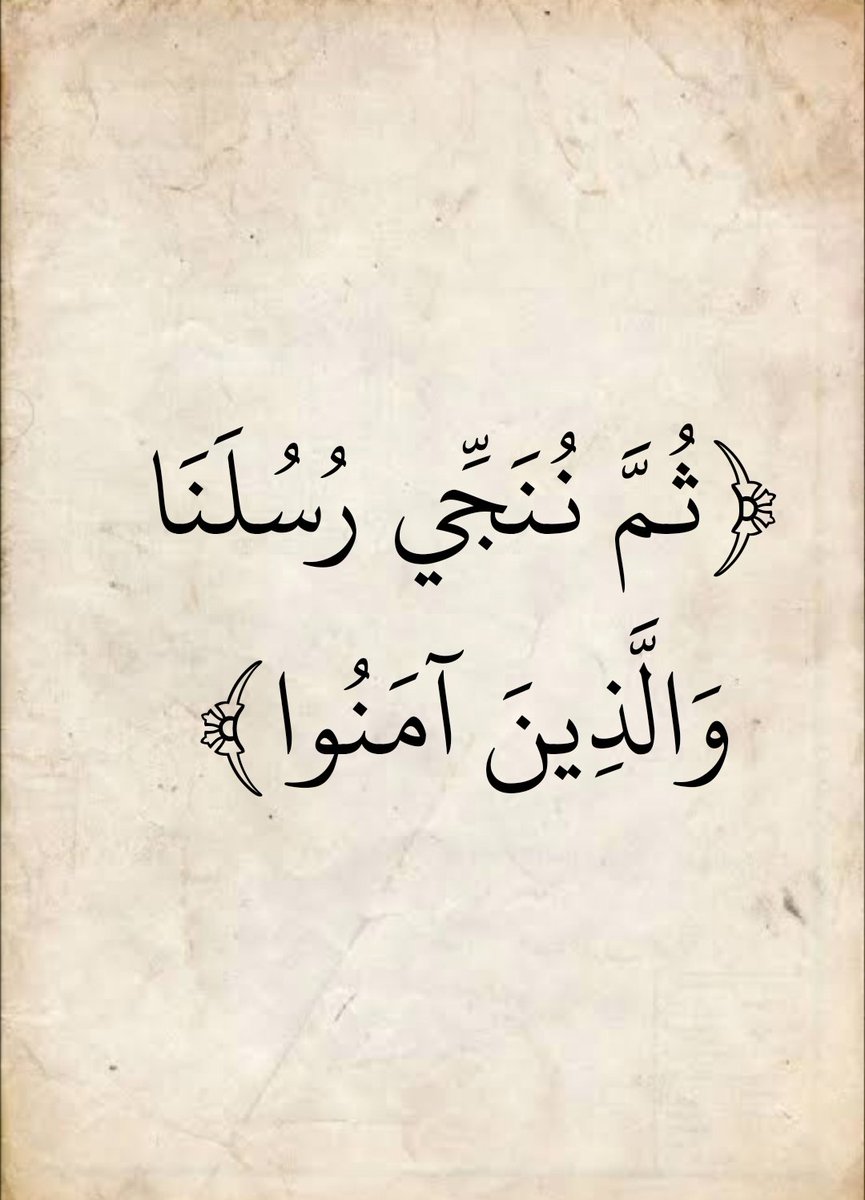 ﴿ثُمَّ نُنَجِّي رُسُلَنَا
وَالَّذِينَ آمَنُوا﴾